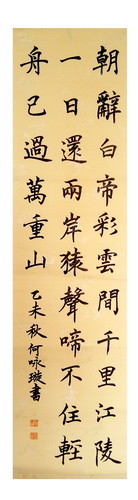 朝辭白帝彩雲間千里江陵
一日還兩岸猿聲啼不住輕
舟已過萬重山
乙未秋何咏璇書